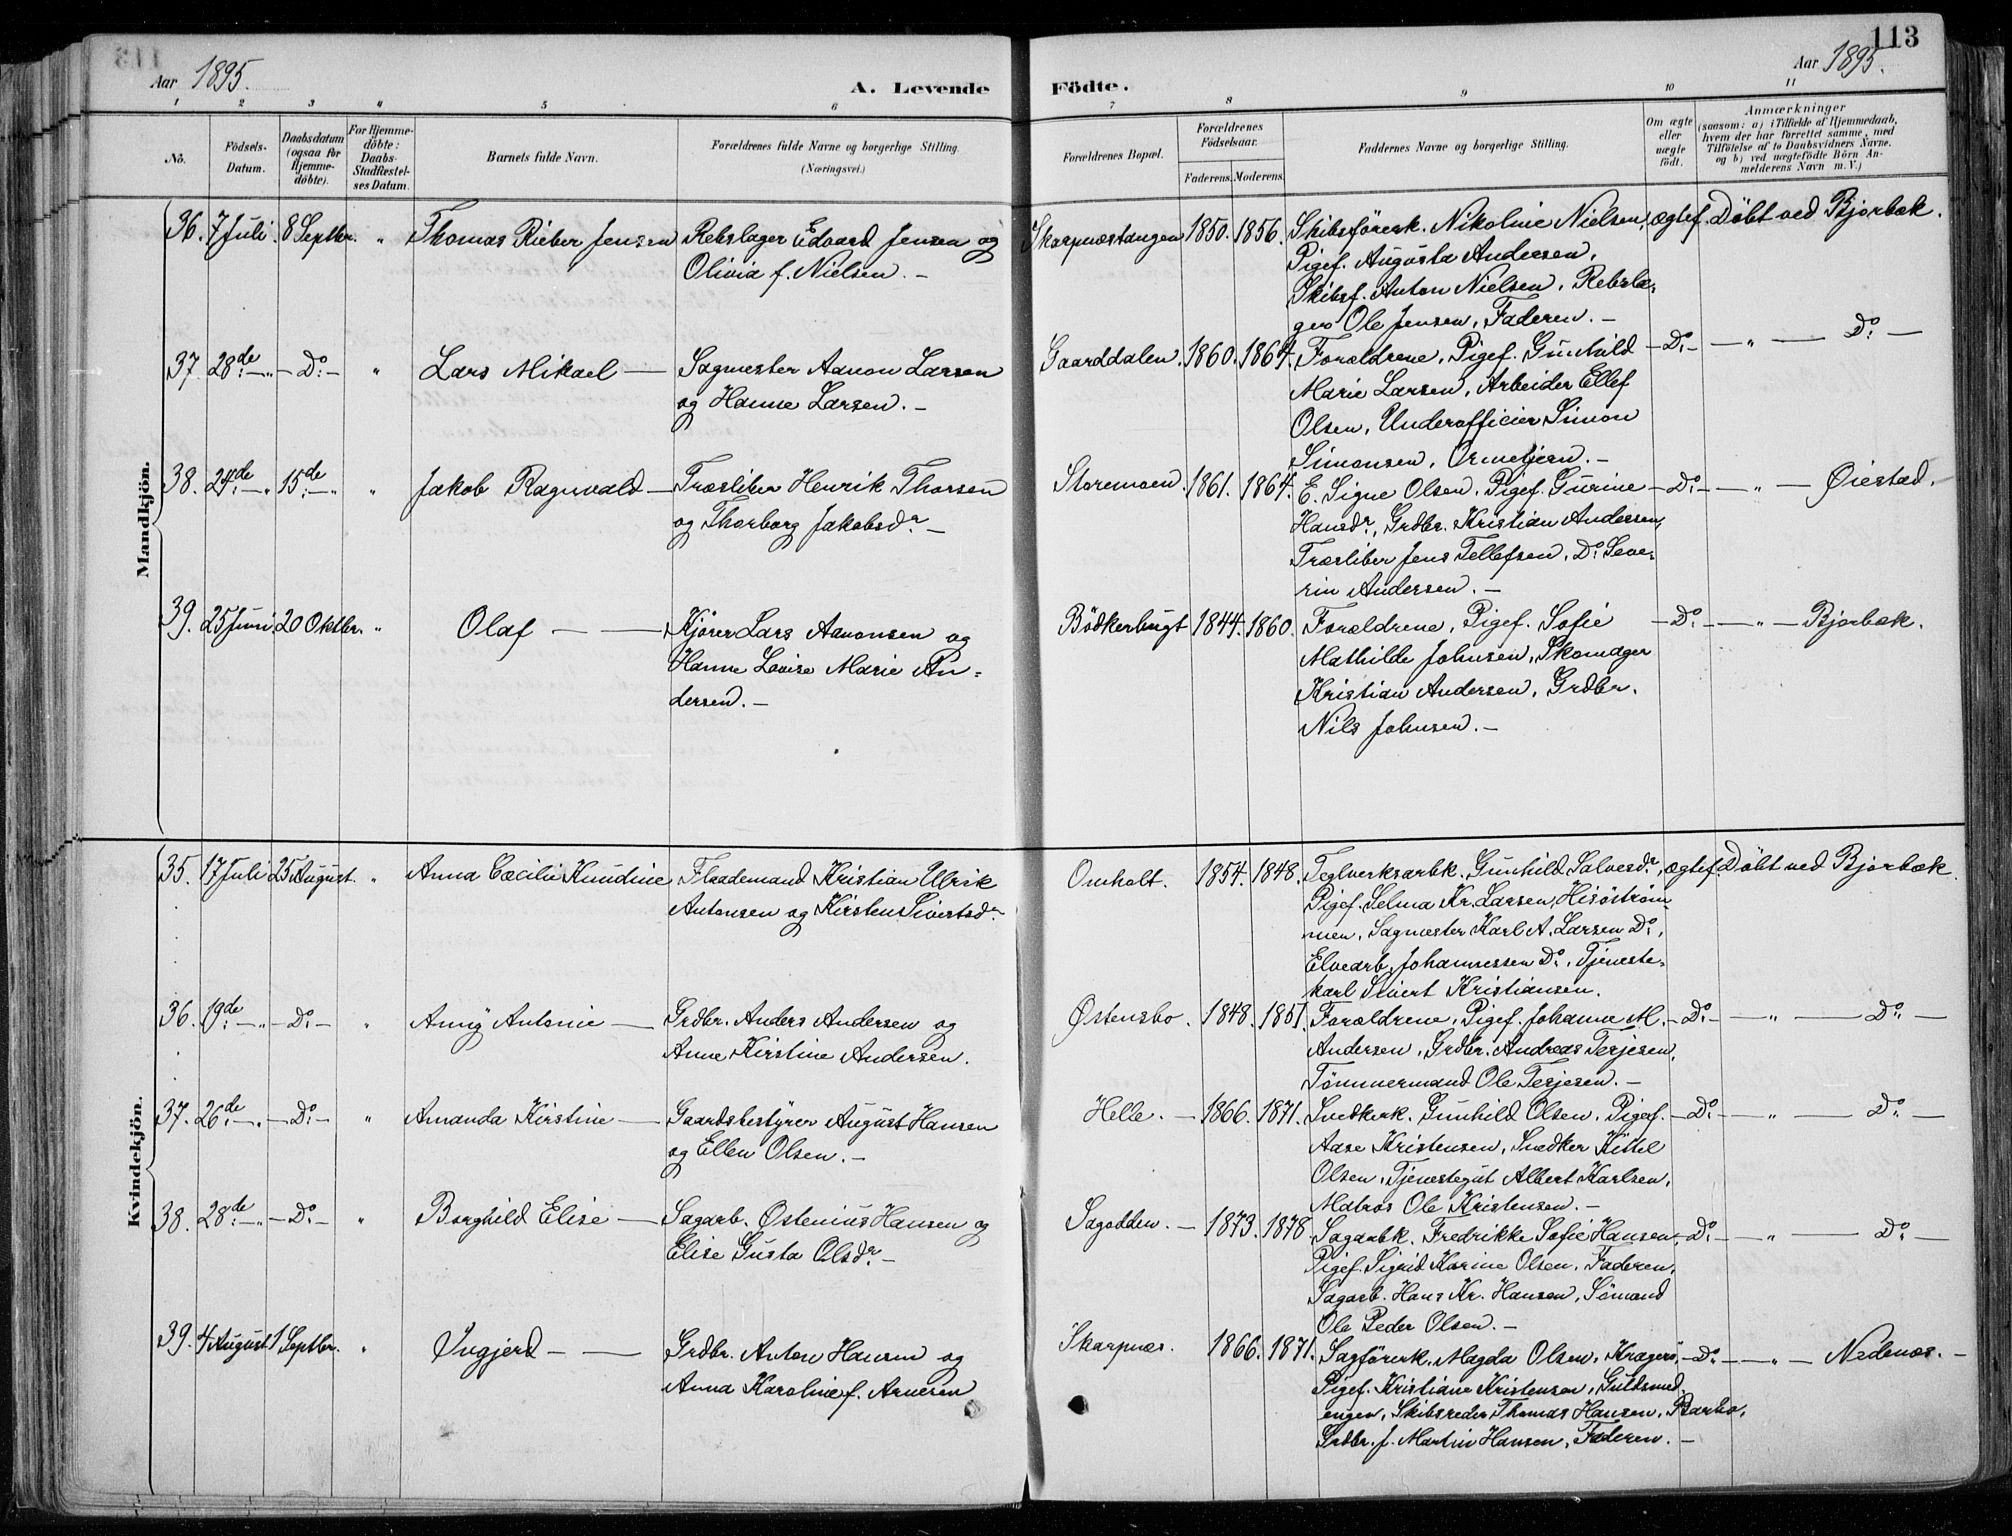 113
Aar 1895.
A. Levende Födte.
Aar 1895.
1 2 3 4 5 6 7 8 9 10 11
No.
Födsels-
Datum.
Daabsdatum
(ogsaa for
Hjemme-
döbte).
For Hjemme-
döbte:
Daabs-
Stadfæstel-
ses Datum.
Barnets fulde Navn.
Forældrenes fulde Navne og borgerlige Stilling.
(Næringsvei.)
Forældrenes Bopæl.
Forældrenes
Födselsaar.
Faderens. Moderens.
Faddernes Navne og borgerlige Stilling.
Om ægte
eller
uægte
födt.
Anmærkninger
(saasom: a) i Tilfælde af Hjemmedaab,
hvem der har forrettet samme, med
Tilföielse af to Daabsvidners Navne.
og b) ved uægtefödte Börn An-
melderens Navn m. V.)
Mandkjön.
36. 7 Juli 8 Septbr. " Thomas Rieber Jensen Rebslager Edvard Jensen og Skarpnæstangen 1850. 1856. Skibsförerk. Nikoline Nielsen, ægtef. Döbt ved Bjorbæk.
Olivia f. Nielsen. –
Pigef. Augusta Andersen,
Skibsf. Anton Nielsen, Rebsla-
ger Ole Jensen, Faderen. –
37. 28de – " – Do – " Lars Mikael – Sagmester Aanon Larsen Gaarddalen. 1860. 1864. Forældrene, Pigef. Gunhild – Do – – " – Do –
og Hanne Larsen. –
Marie Larsen, Arbeider Ellef
Olsen, Underofficier Simon
Simonsen, Ormetjern. –
38. 24de – " 15de – " " Jakob Ragnvald – Træsliber Henrik Thorsen Staremoen. 1861. 1864. E. Signe Olsen, Pigef. Gurine – Do – – " – Øiestad.
og Thorborg Jakobsdr –
Hansdr, Grdbr. Kristian Andersen,
Træsliber Jens Tellefsen, Do Seve-
rin Andersen. –
39. 25 Juni 20 Oktbr. " Olaf – – Kjörer Lars Aanonsen og Bödkerbugt 1844. 1860. Forældrene, Pigef. Sofie – Do – – " – Bjorbæk.
Hanne Lovise Marie An-
dersen. –
Mathilde Johnsen, Skomager
Kristian Andersen, Grdbr.
Nils Johnsen. –
Kvindekjön.
35. 17 Juli 25 August. " Anna Cæcilie Knudine Flaademand Kristian Ulrik Omholt. 1854. 1848. Teglverksarbk. Gunhild Salvesdr, ægtef. Döbt ved Bjorbæk.
Antonsen og Kirsten Sivertsdr
Pigef. Selma Kr. Larsen, Hisöström-
men, Sagmester Karl A. Larsen Do,
Elvearb. Johannessen Do, Tjeneste-
karl Sivert Kristiansen.
36. 19de – " – Do – " Anny Antonie – Grdbr. Anders Andersen og Østensbo. 1848. 1851. Forældrene, Pigef. Johanne M. – Do – – " – Do –
Anne Kirstine Andersen.
Andersen, Grdbr. Andreas Terjesen,
Tömmermand Ole Terjesen. –
37. 26de – " – Do – " Amanda Kirstine – Gaardsbestyrer August Hansen Helle. – 1866. 1871. Snedkerk. Gunhild Olsen, Pigef. – Do – – " – Do –
og Ellen Olsen. –
Aase Kristensen, Snedker Kittel
Olsen, Tjenestegut Albert Karlsen,
Matros Ole Kristensen. –
38. 28de – " – Do – " Borghild Elise – Sagarb. Østenius Hansen og Sagodden. – 1873. 1878. Sagarbk. Fredrikke Sofie Hansen, – Do – – " – Do –
Elise Gusta Olsdr –
Pigef. Sigrid Karine Olsen, Faderen,
Sagarb. Hans Kr. Hansen, Sömand
Ole Peder Olsen. –
39. 4 August 1 Septbr. " Ingjerd – – Grdbr. Anton Hansen og Skarpnæs. 1866. 1871. Sagförerk. Magda Olsen, Kragerö, – Do – – " – Nedenæs. –
Anna Karoline f. Arnesen
Pigef. Kristiane Kristensen, Guldsmed-
engen, Skibsreder Thomas Hansen, Barbo,
Grdbr. f. Martin Hansen, Faderen. –